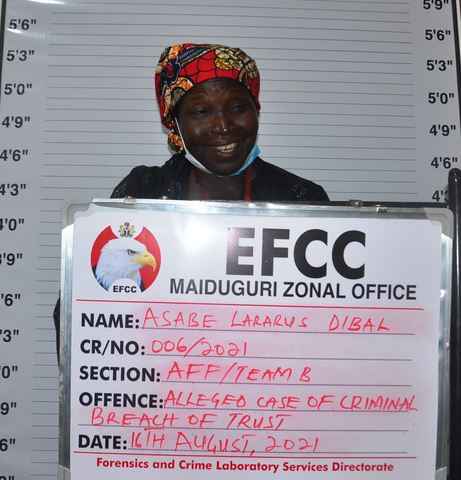 5'6"
5'3"
5'0"
4'9"
4'6"
4'3"
4'0"
3'9"
3'6"
3'3"
3'0"
2'9"
2'6"
5'9"
5'6"
5'3"
5'0"
4'9"
4'6"
4'3"
EFCC
EFCC
MAIDUGURI ZONAL OFFICE
NAME: ASABE LARARUS DIBAL
CR/NO: 006/2021
SECTION: AFF/TEAM B
OFFENCE: ALLEGED CASE OF CRIMINAL
BREACH OF TRUST
DATE: 16TH AUGUST, 2021
Forensics and Crime Laboratory Services Directorate